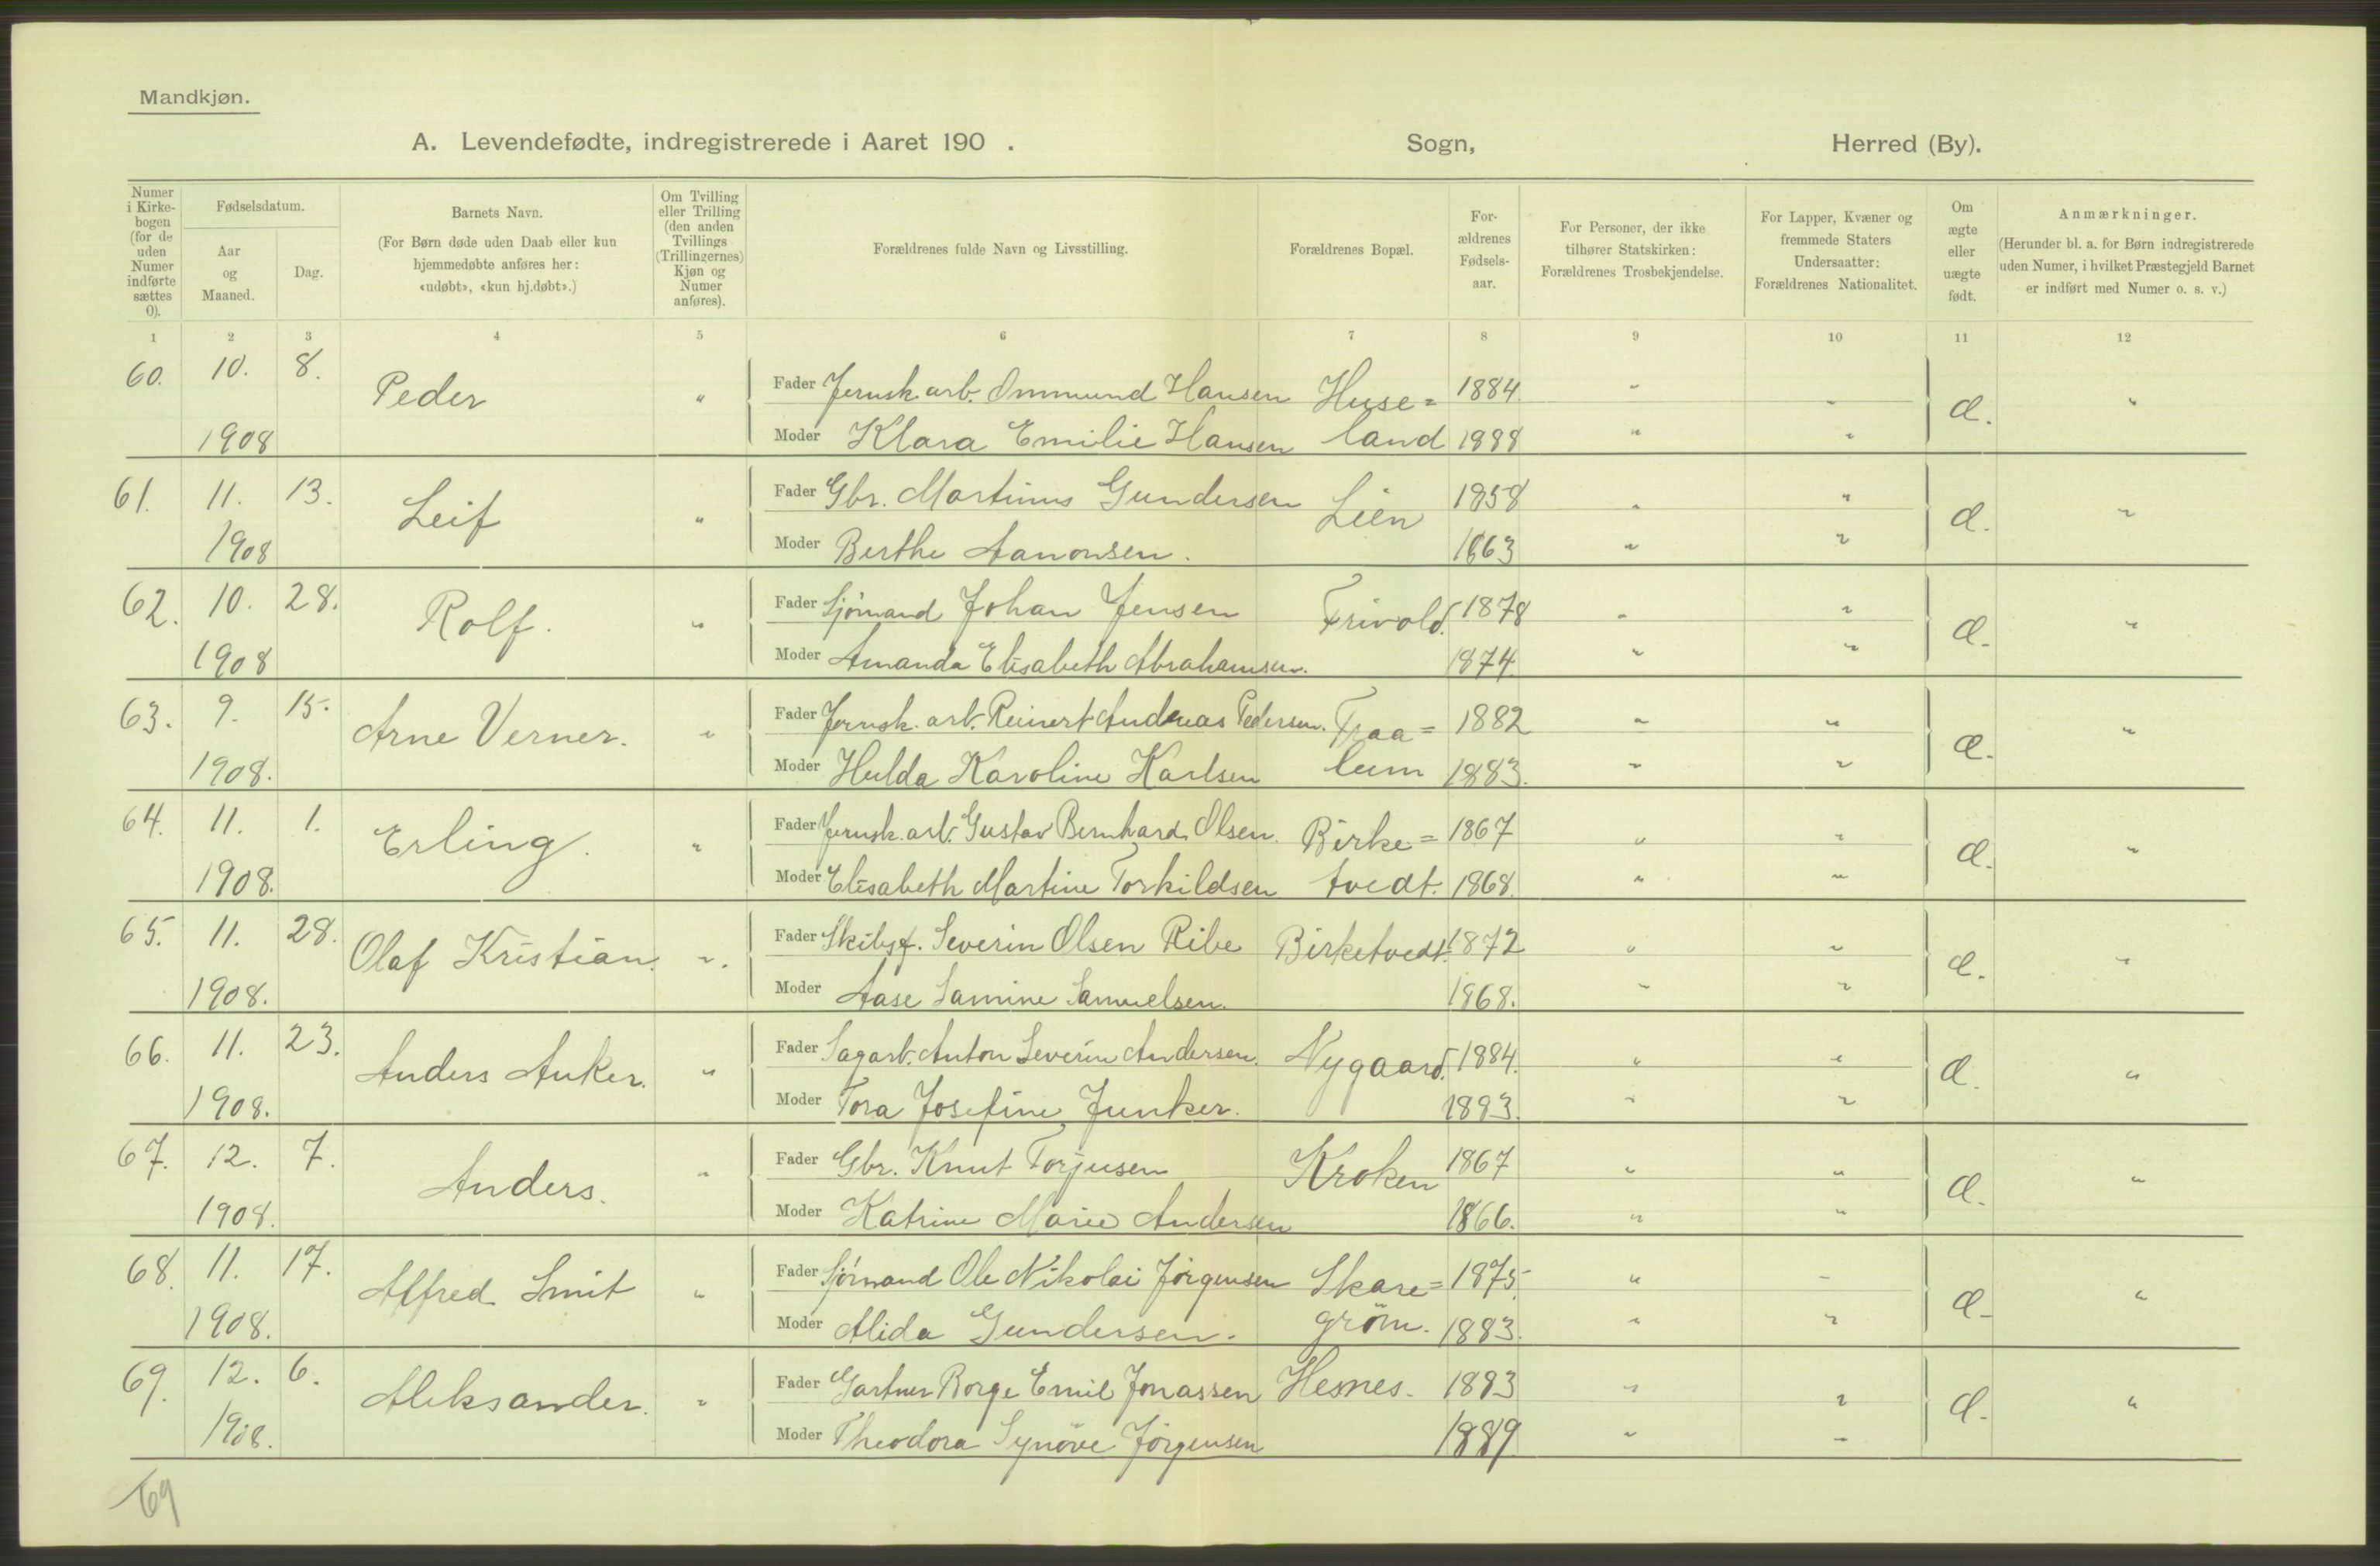 Mandkjøn.
A. Levendefødte, indregistrerede i Aaret 190 . Sogn, Herred (By).
Numer i Kirkebogen (for de uden Numer indførte sættes 0).
Fødselsdatum.
Aar og Maaned.
Dag.
Barnets Navn.
(For Børn døde uden Daab eller kun hjemmedøbte anføres her: «udøbt», «kun hj.døbt».)
Om Tvilling eller Trilling (den anden Tvillings (Trillingernes) Kjøn og Numer anføres).
Forældrenes fulde Navn og Livsstilling.
Forældrenes Bopæl.
For-ældrenes Fødsels-aar.
For Personer, der ikke tilhører Statskirken: Forældrenes Trosbekjendelse.
For Lapper, Kvæner og fremmede Staters Undersaatter: Forældrenes Nationalitet.
Om ægte eller uægte født.
Anmærkninger.
(Herunder bl. a. for Børn indregistrerede uden Numer, i hvilket Præstegjeld Barnet er indført med Numer o. s. v.)
1 2 3 4 5 6 7 8 9 10 11 12
60. 10. 8. Peder " Fader Jernsk. arb. Ommund Hansen Huse= 1884 " " Æ. "
1908 Moder Klara Emilie Hansen land 1888 " "
61. 11. 13. Leif " Fader Gbr. Martinus Gundersen Lien 1858 " " Æ. "
1908 Moder Berthe Aanonsen. 1863 " "
62. 10. 28. Rolf. " Fader Sjömand Johan Jensen Frivold. 1878 " " Æ. "
1908 Moder Amanda Elisabeth Abrahamsen. 1874. " "
63. 9. 15. Arne Verner. " Fader Jernsk. arb. Reinert Andreas Pedersen. Fraa= 1882 " " Æ. "
1908. Moder Hulda Karoline Karlsen lum 1883. " "
64. 11. 1. Erling. " Fader Jernsk. arb. Gustav Bernhard Olsen. Birke= 1867 " " Æ. "
1908. Moder Elisabeth Martine Torkildsen tvedt. 1868. " "
65. 11. 28. Olaf Kristian. " Fader Skibsf. Severin Olsen Ribe Birketvedt. 1872 " " Æ. "
1908. Moder Aase Samine Samuelsen. 1868. " "
66. 11. 23. Anders Anker. " Fader Sagarb. Anton Severin Andersen. Nygaard. 1884. " " Æ. "
1908. Moder Tora Josefine Junker. 1883. " "
67. 12. 7. Anders. " Fader Gbr. Knut Torjusen Kroken 1867 " " Æ. "
1908. Moder Katrine Marie Andersen 1866. " "
68. 11. 17. Alfred Smit " Fader Sjömand Ole Nikolai Jörgensen Skare= 1875. " " Æ. "
1908. Moder Alida Gundersen. gröm. 1883. " "
69. 12. 6. Aleksander. " Fader Gartner Borge Emil Jonassen Hesnes. 1883 " " Æ. "
1908. Moder Theodora Synöve Jörgensen 1889 " "
69